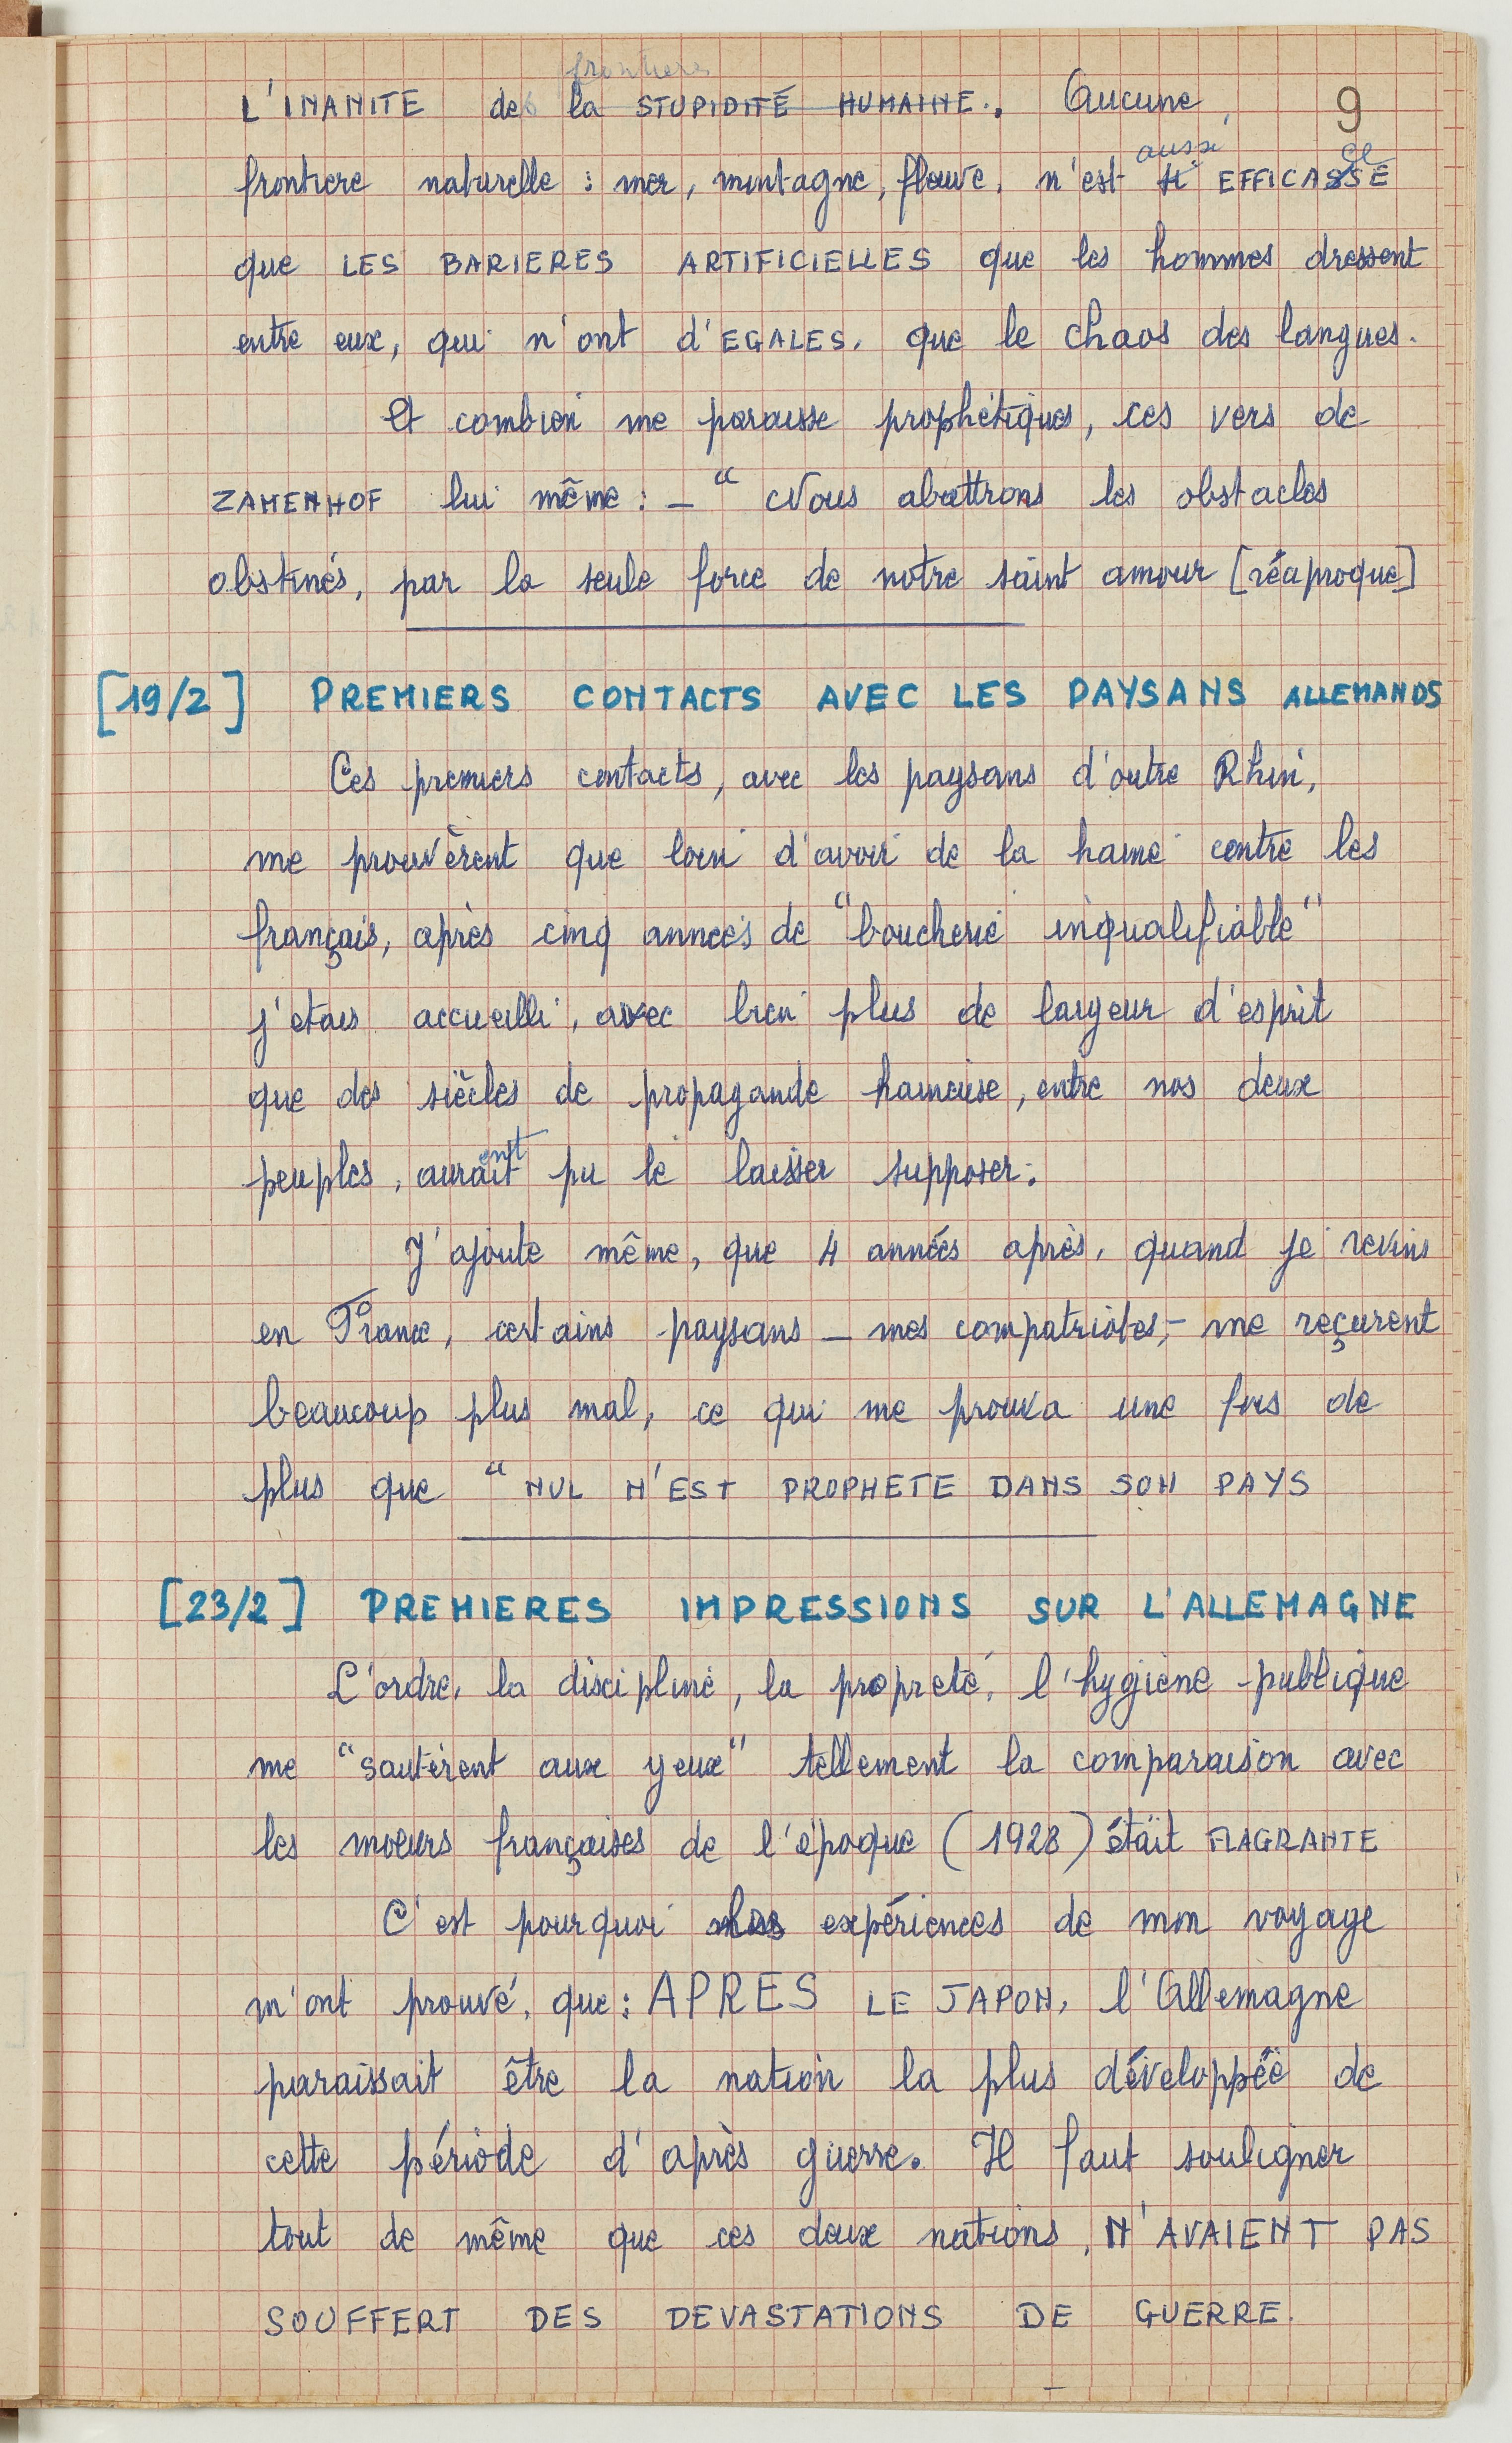 frontieres
L'INANITE des la STUPIDITÉ HUMAINE. Aucune, 9
aussi ce
frontiere naturelle : mer, montagne, fleuve, n'est si EFFICASSE
que LES BARIERES ARTIFICIELLES que les hommes dressent
entre eux, qui n'ont d'EGALES, que le chaos des langues.
Et combien me paraisse prophétiques, ces vers de
ZAMENHOF lui même : — " Nous abattrons les obstacles
obstinés, par la seule force de notre saint amour [réciproque]
[19/2] PREMIERS CONTACTS AVEC LES PAYSANS ALLEMANDS
Ces premiers contacts, avec les paysans d'outre Rhin,
me prouvèrent que loin d'avoir de la haine contre les
français, après cinq années de "boucherie inqualifiable"
j'etais accueilli, avec bien plus de largeur d'esprit
que des siècles de propagande haineuse, entre nos deux
ent
peuples, aurait pu le laisser supposer.
J'ajoute même, que 4 années après, quand je revins
en France, certains paysans — mes compatriotes, — me reçurent
beaucoup plus mal, ce qui me prouva une fois de
plus que " NUL N'EST PROPHETE DANS SON PAYS
[23/2] PREMIERES IMPRESSIONS SUR L'ALLEMAGNE
L'ordre, la discipline, la propreté, l'hygiène publique
me "sautèrent aux yeux" tellement la comparaison avec
les moeurs françaises de l'époque (1928) était FLAGRANTE
C'est pourquoi les expériences de mon voyage
m'ont prouvé, que : APRES LE JAPON, l'Allemagne
paraissait être la nation la plus développée de
cette période d'après guerre. Il faut souligner
tout de même que ces deux nations, N'AVAIENT PAS
SOUFFERT DES DEVASTATIONS DE GUERRE.